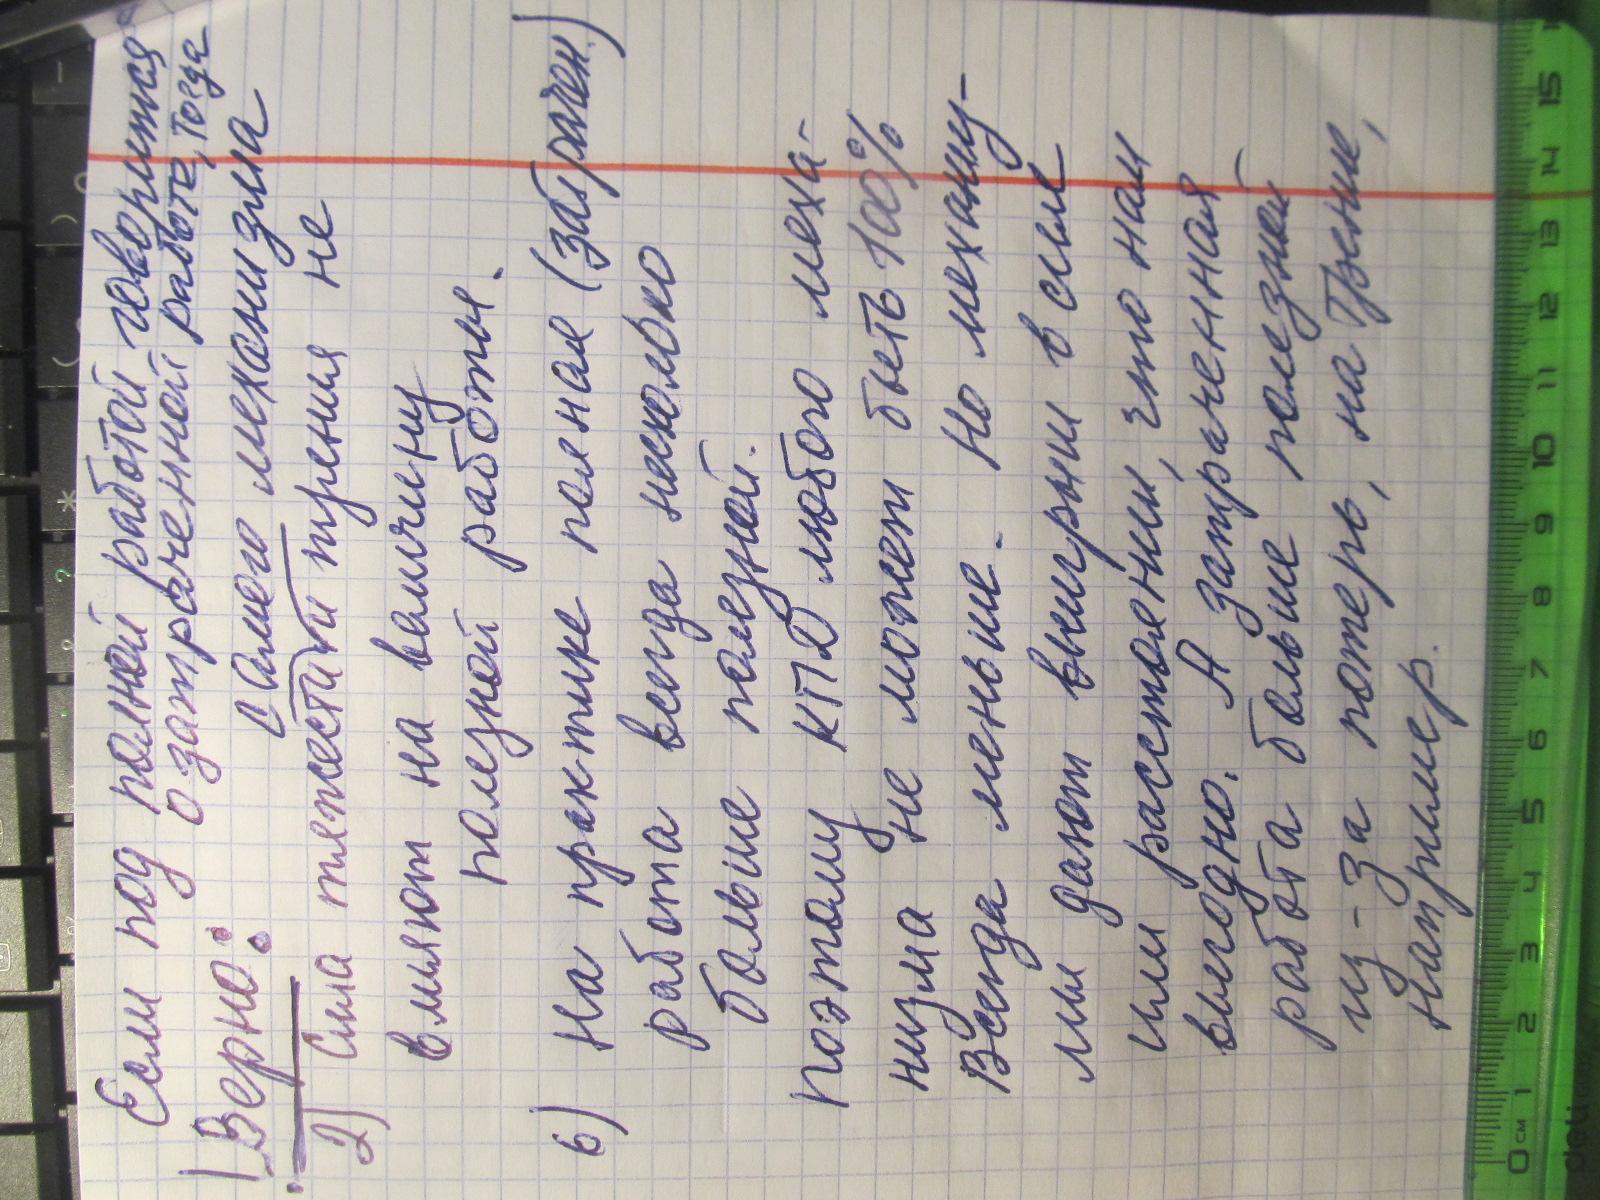 Если под полной работой говорится
о затраченной работе, тогда
Верно:
самого механизма
2) Сила тяжести и трения не
влияют на величину
полезной работы.
б) На практике полная (затрачен.)
работа всегда несколько
больше полезной.
Поэтому КПД любого меха-
низма не может быть 100%
Всегда меньше. Но механиз-
мы дают выигрыш в силе
или расстоянии, что нам
выгодно. А затраченная
работа больше полезной
из-за потерь, на трение,
например.
0 см 1 2 3 4 5 6 7 8 9 10 11 12 13 14 15
deli